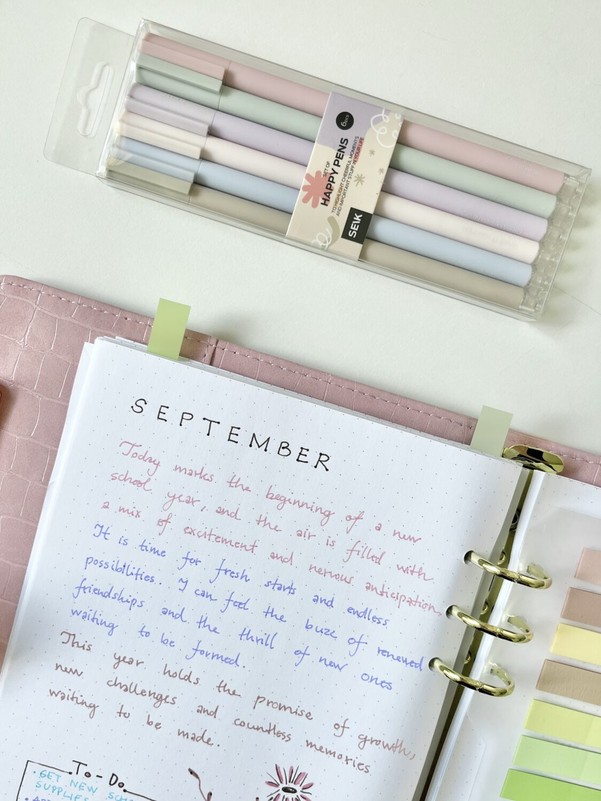 6 SET
SET OF
HAPPY PENS
TO HIGHLIGHT CHEERFUL MOMENTS
AND IMPORTANT STUFF IN YOUR LIFE
SEIK
SEPTEMBER
Today marks the beginning of a new
school year, and the air is filled with
a mix of excitement and nervous anticipation.
It is time for fresh starts and endless
possibilities. I can feel the buzz of renewed
friendships and the thrill of new ones
waiting to be formed.
This year holds the promise of growth,
new challenges and countless memories
waiting to be made.
To-Do
• GET NEW
SUPPLIES